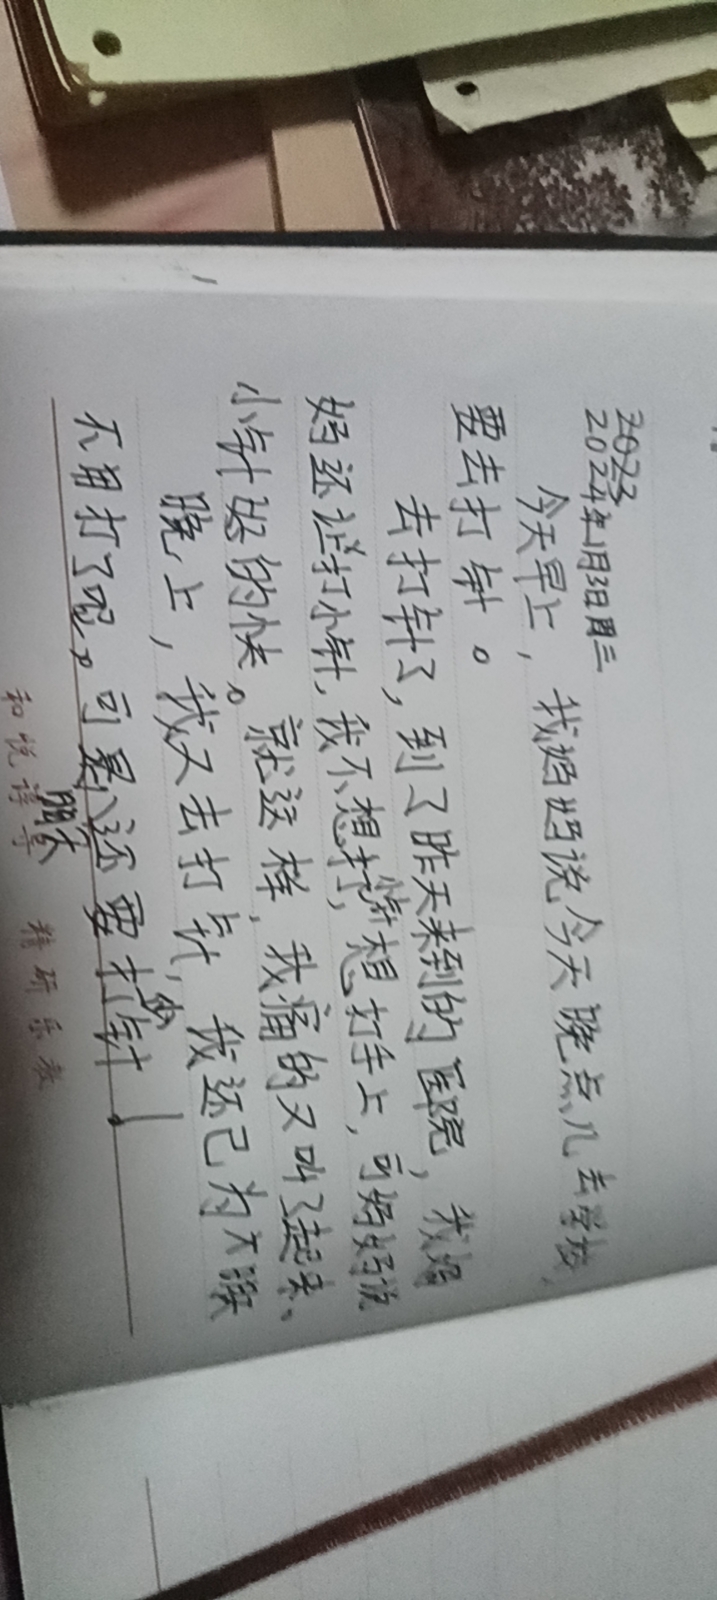 2023
2024年1月3日周三
今天早上，我妈妈说今天晚点儿去学校，
要去打针。
去打针了，到了昨天来到的医院，我妈
妈还让打小针，我不想打，想打手上，可妈妈说
小针好的快。就这样，我痛的又叫了起来、
晚上，我又去打针，我还已为不
不用打了呢，可是还要打针
和悦谆尊 精研乐教